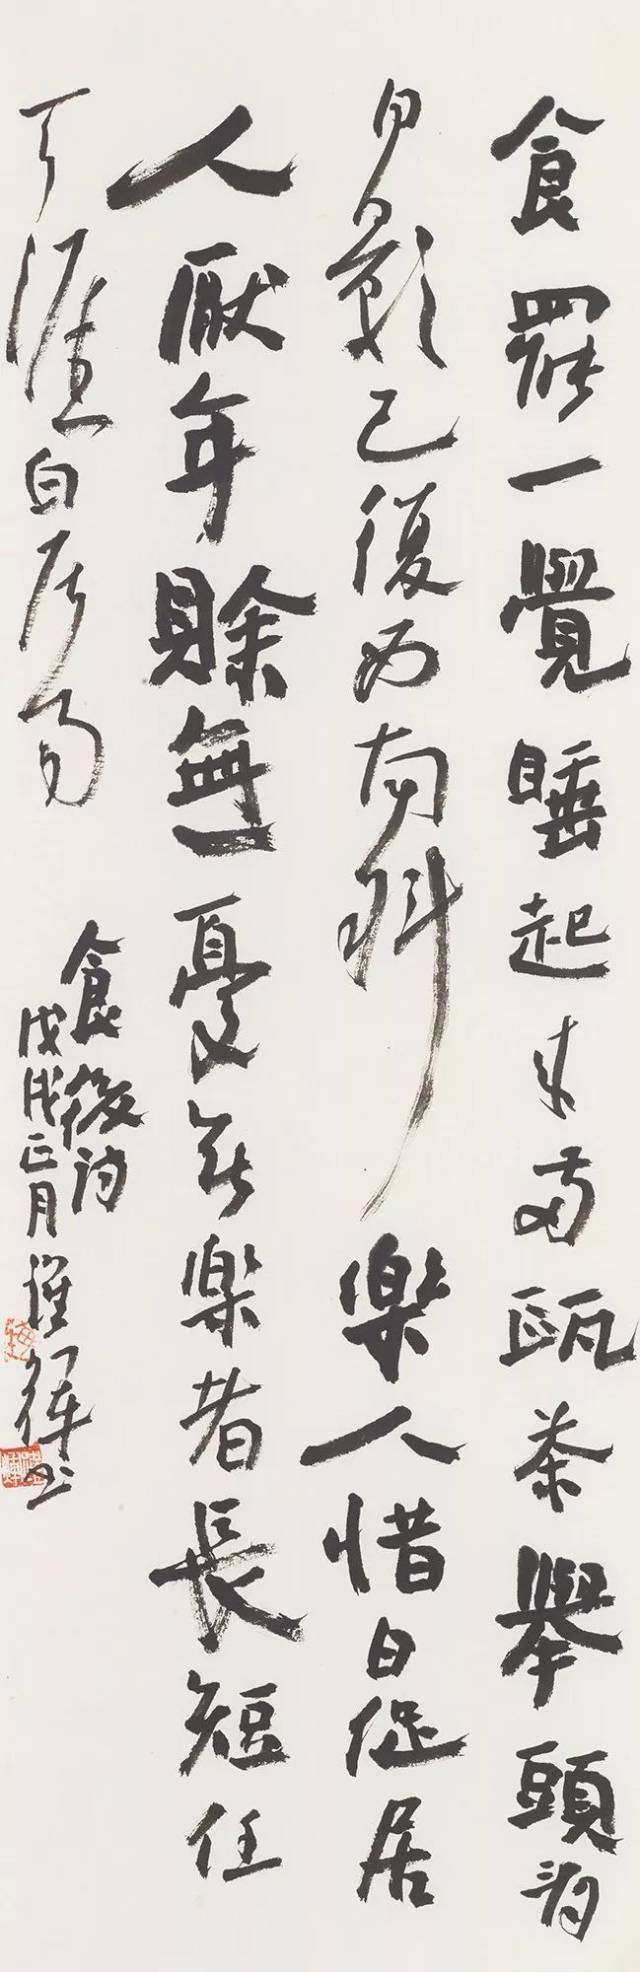 食罷一覺睡起来兩甌茶舉頭看
日影已復西南斜樂人惜日促居
人厭年賒無憂无樂者長短任
涯白居易
食後詩
戊戌正月